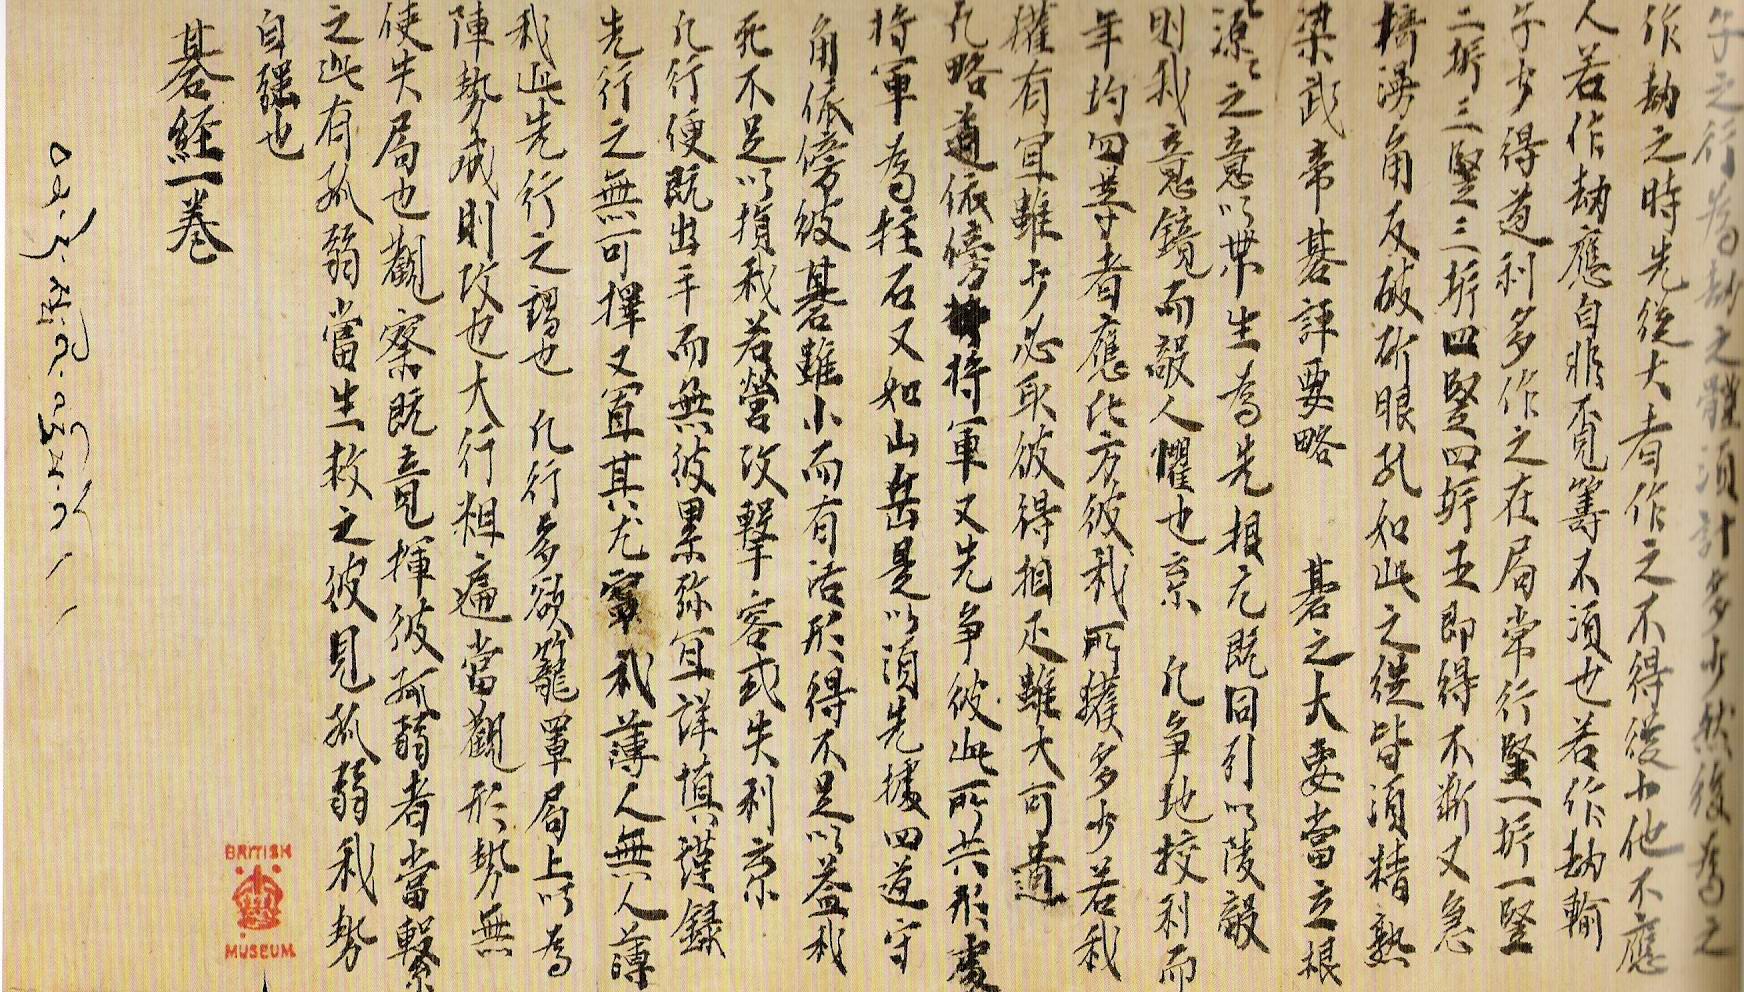 子之行為劫之體須計多少然後為之
作劫之時先從大者作之不得從小他不應
人若作劫應自非不覓籌不須也若作劫輸
子少得道利多多作之在局常行竪一拆一竪
二拆三竪三拆四竪四拆五即得不斷又急
㩧角反破斫眼孔如此之徒皆須精熟
梁武帝碁評要略 碁之大要當立根
源之意以帶生為先相充既同引以陵敵
則我意鏡而敵人懼也 京 凡爭地挍利而
年均四等者應化方彼我所獲多少若我
獲有冝雖少必取彼得相匹雖大可遺
凡略道依傍將軍又先爭彼此所共形處
將軍為柱石又如山岳是以須先據四道守
角依傍彼碁雖小而有活形得不足以益我
死不足以損我若營攻擊容或失利 京
凡行便既出手而無彼累弥冝詳慎謹錄
先行之無可擇又冝其尤 我薄人無人薄
我此先行之謂也 凡行多欲籠罩局上以為
陣勢或則攻也大行粗遍當觀形勢無
使失局也觀察既竟揮彼孤弱者當擊
之此有孤弱當生救之彼見孤弱我勢
自強也
碁經一卷
BRITISH
MUSEUM